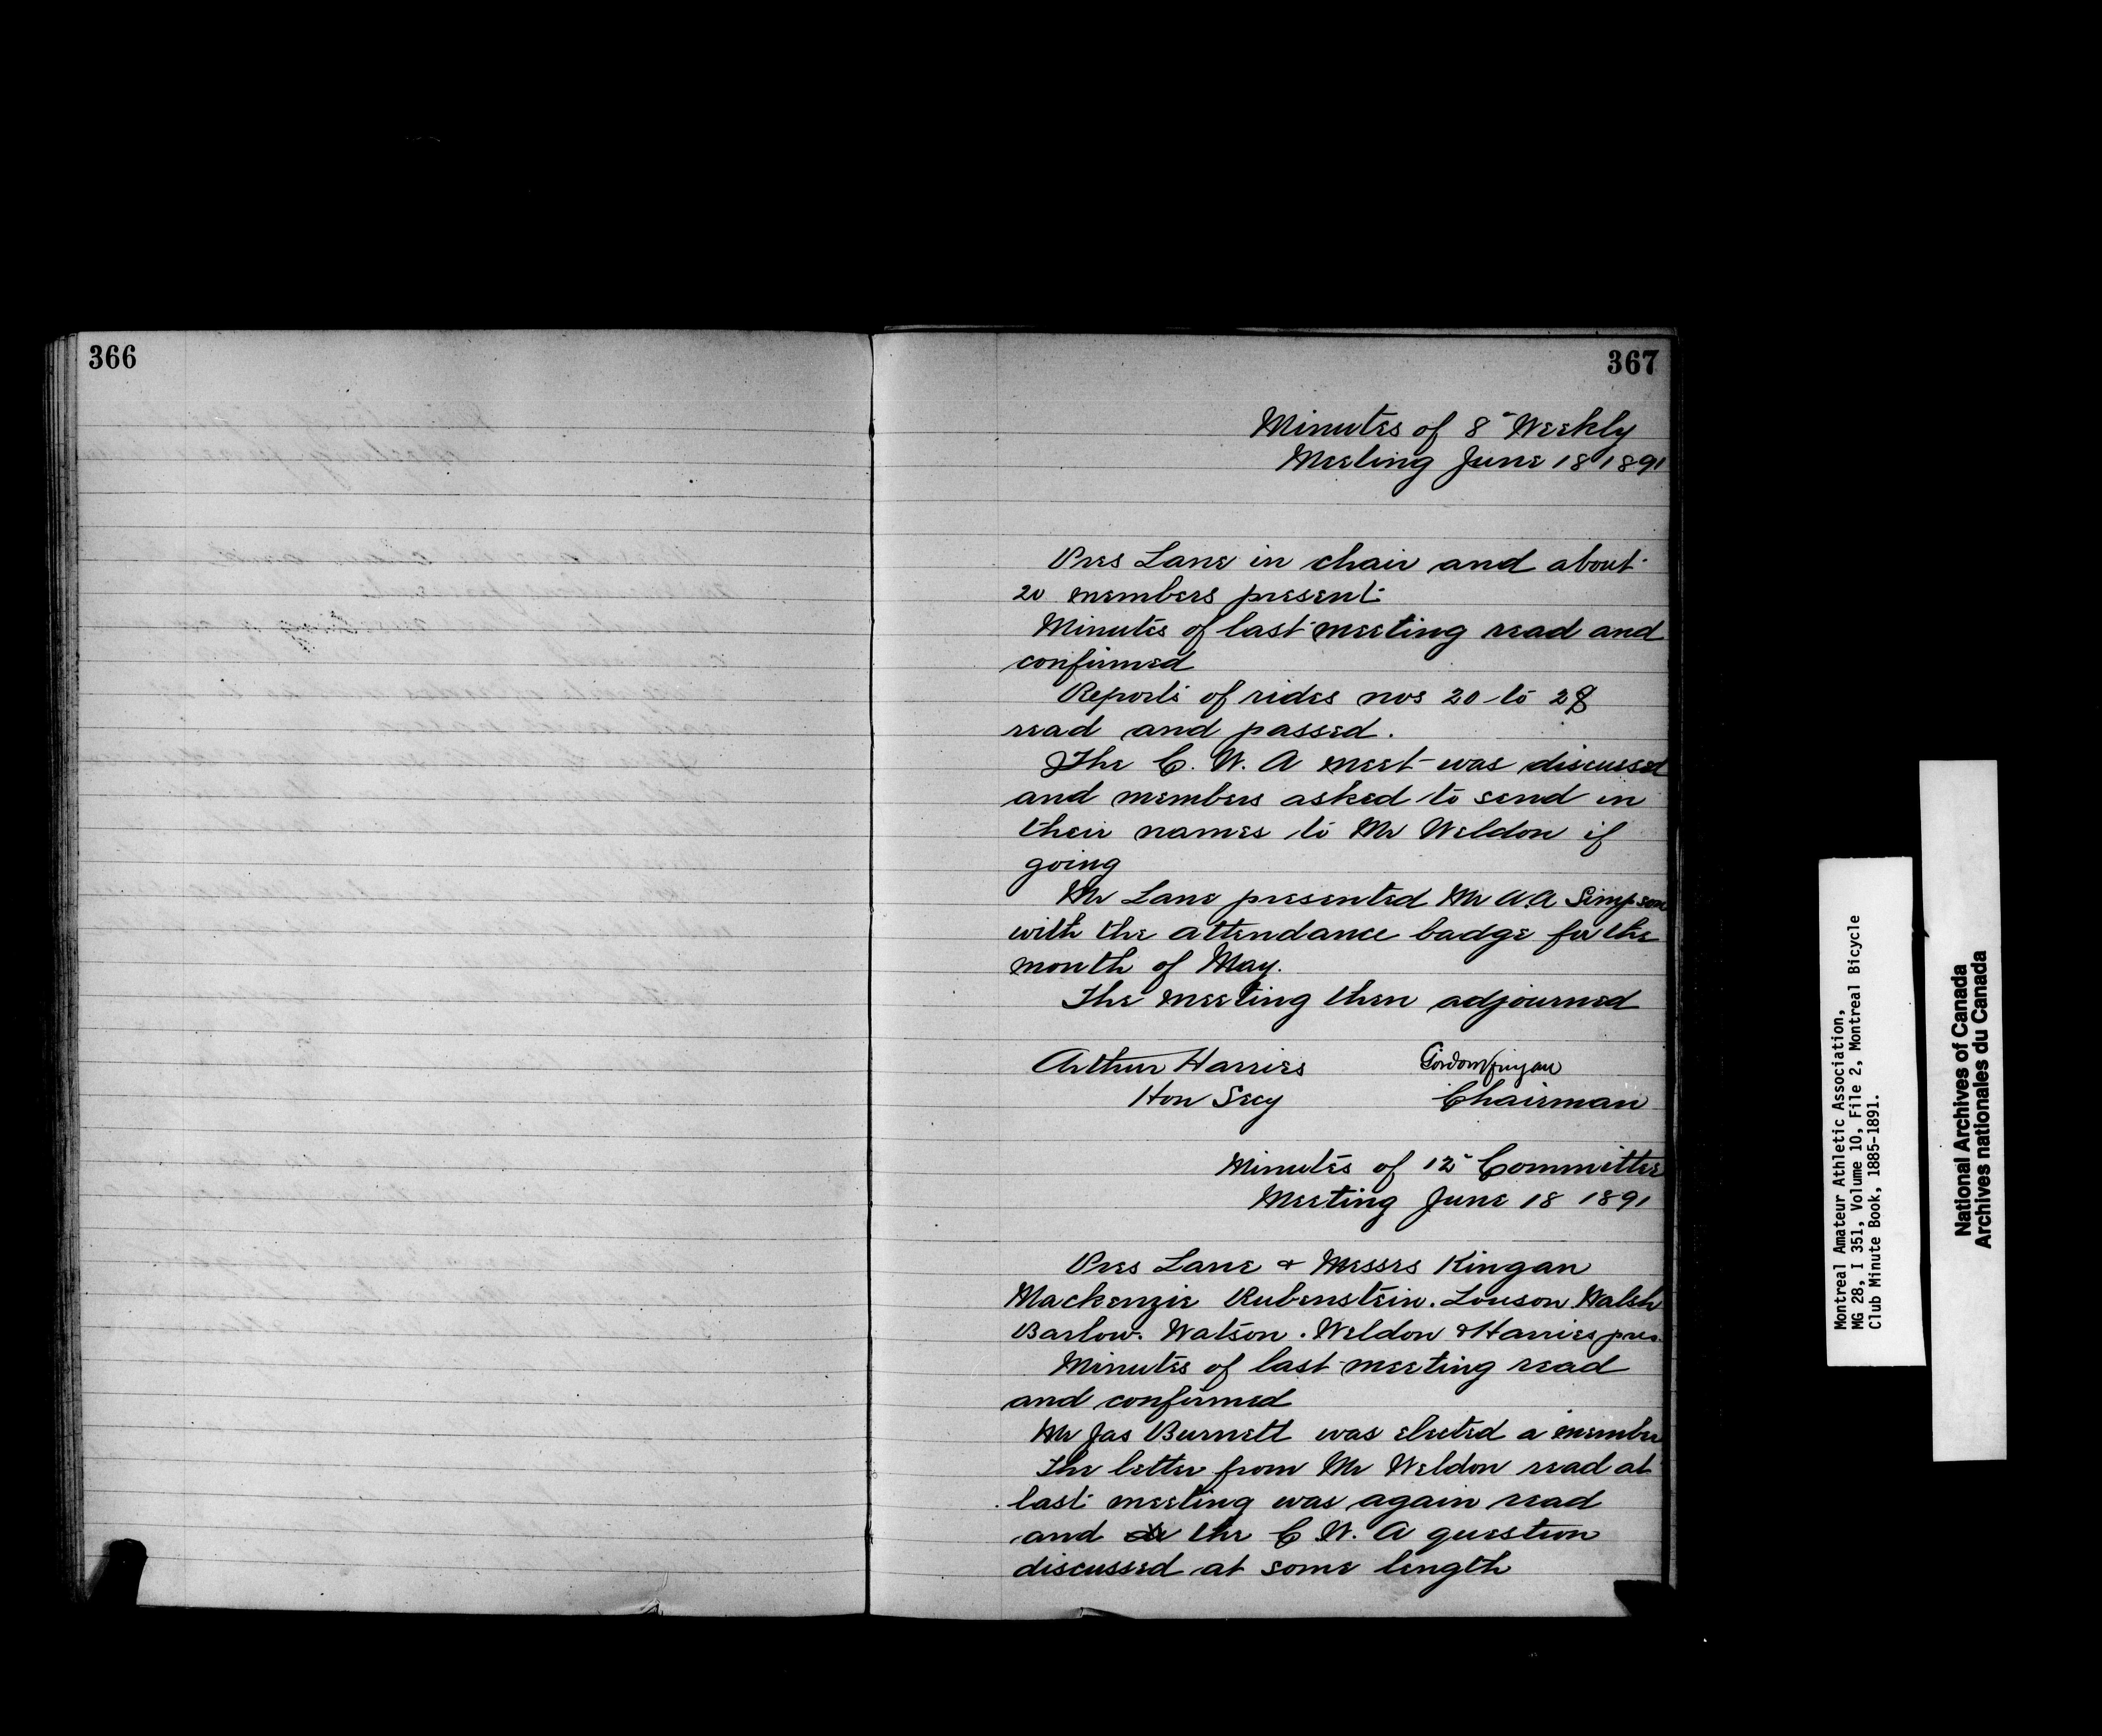 366
367
Minutes of 8" Weekly
Meeting June 18 1891
Pres Lane in chair and about
20 members present
Minutes of last meeting read and
confirmed
Reports of rides nos 20 to 28
read and passed.
The C. W. A meet was discussed
and members asked to send in
their names to Mr Weldon if
going
Mr Lane presented Mr A.A Simpson
with the attendance badge for the
month of May.
The meeting then adjourned
Arthur Harries Gordon Kingan
Hon Secy Chairman
Minutes of 12" Committee
Meeting June 18 1891
Pres Lane + Messrs Kingan
Mackenzie Rubenstein. Louson Walsh
Barlow. Watson. Weldon & Harries pres.
Minutes of last meeting read
and confirmed
Mr Jas Burnett was elected a member
The letter from Mr Weldon read at
last meeting was again read
and the C W. A question
discussed at some length
Montreal Amateur Athletic Association,
MG 28, I 351, Volume 10, File 2, Montreal Bicycle
Club Minute Book, 1885-1891.
National Archives of Canada
Archives nationales du Canada